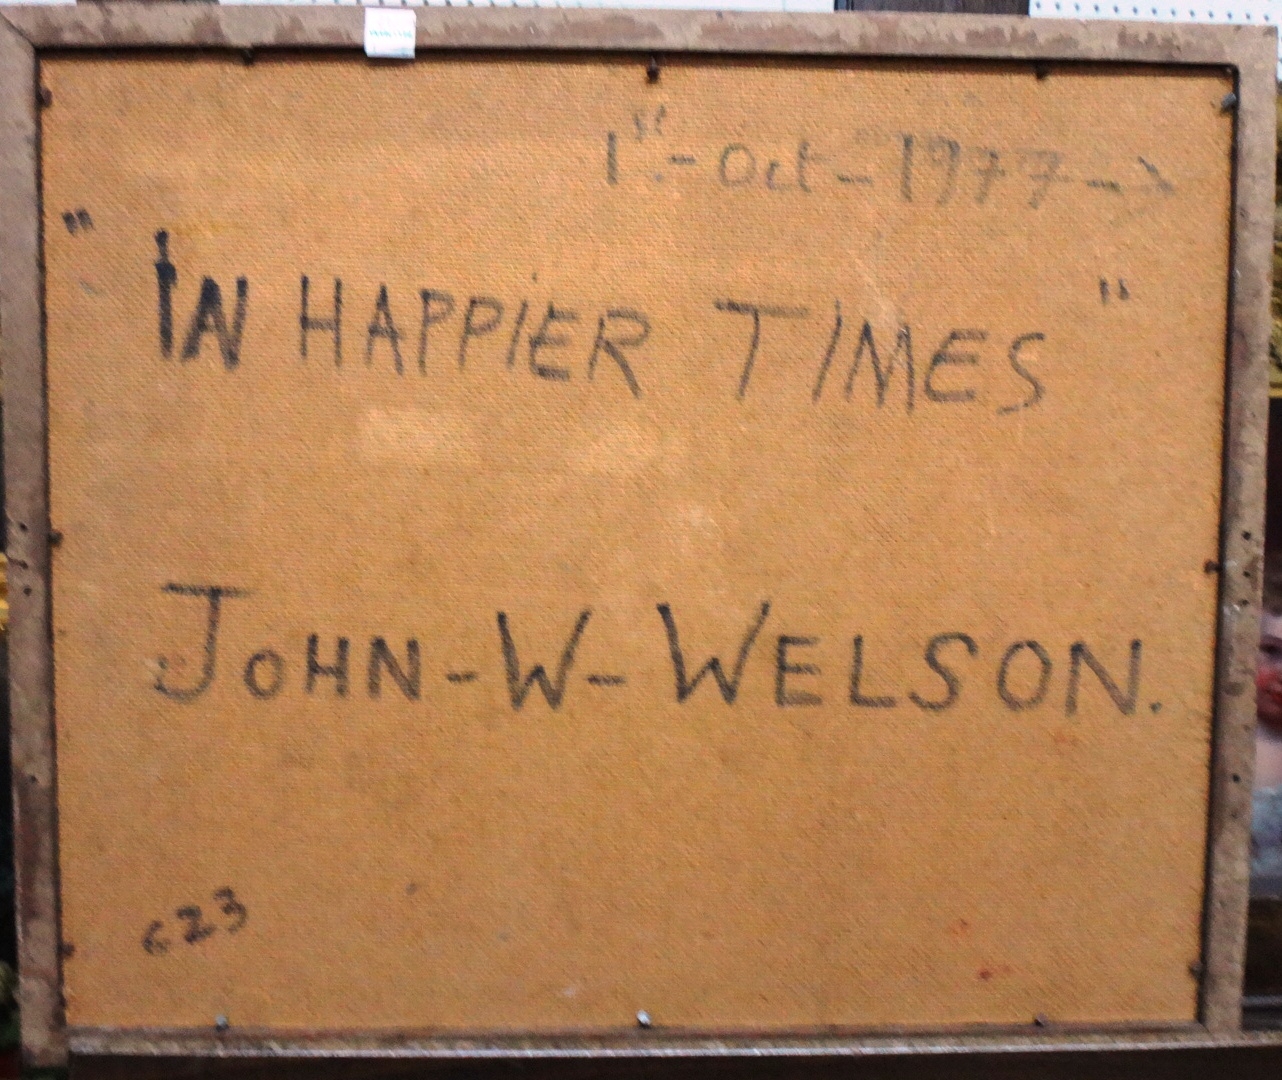 1st.-Oct-1977-->
" IN HAPPIER TIMES "
JOHN-W-WELSON.
c23